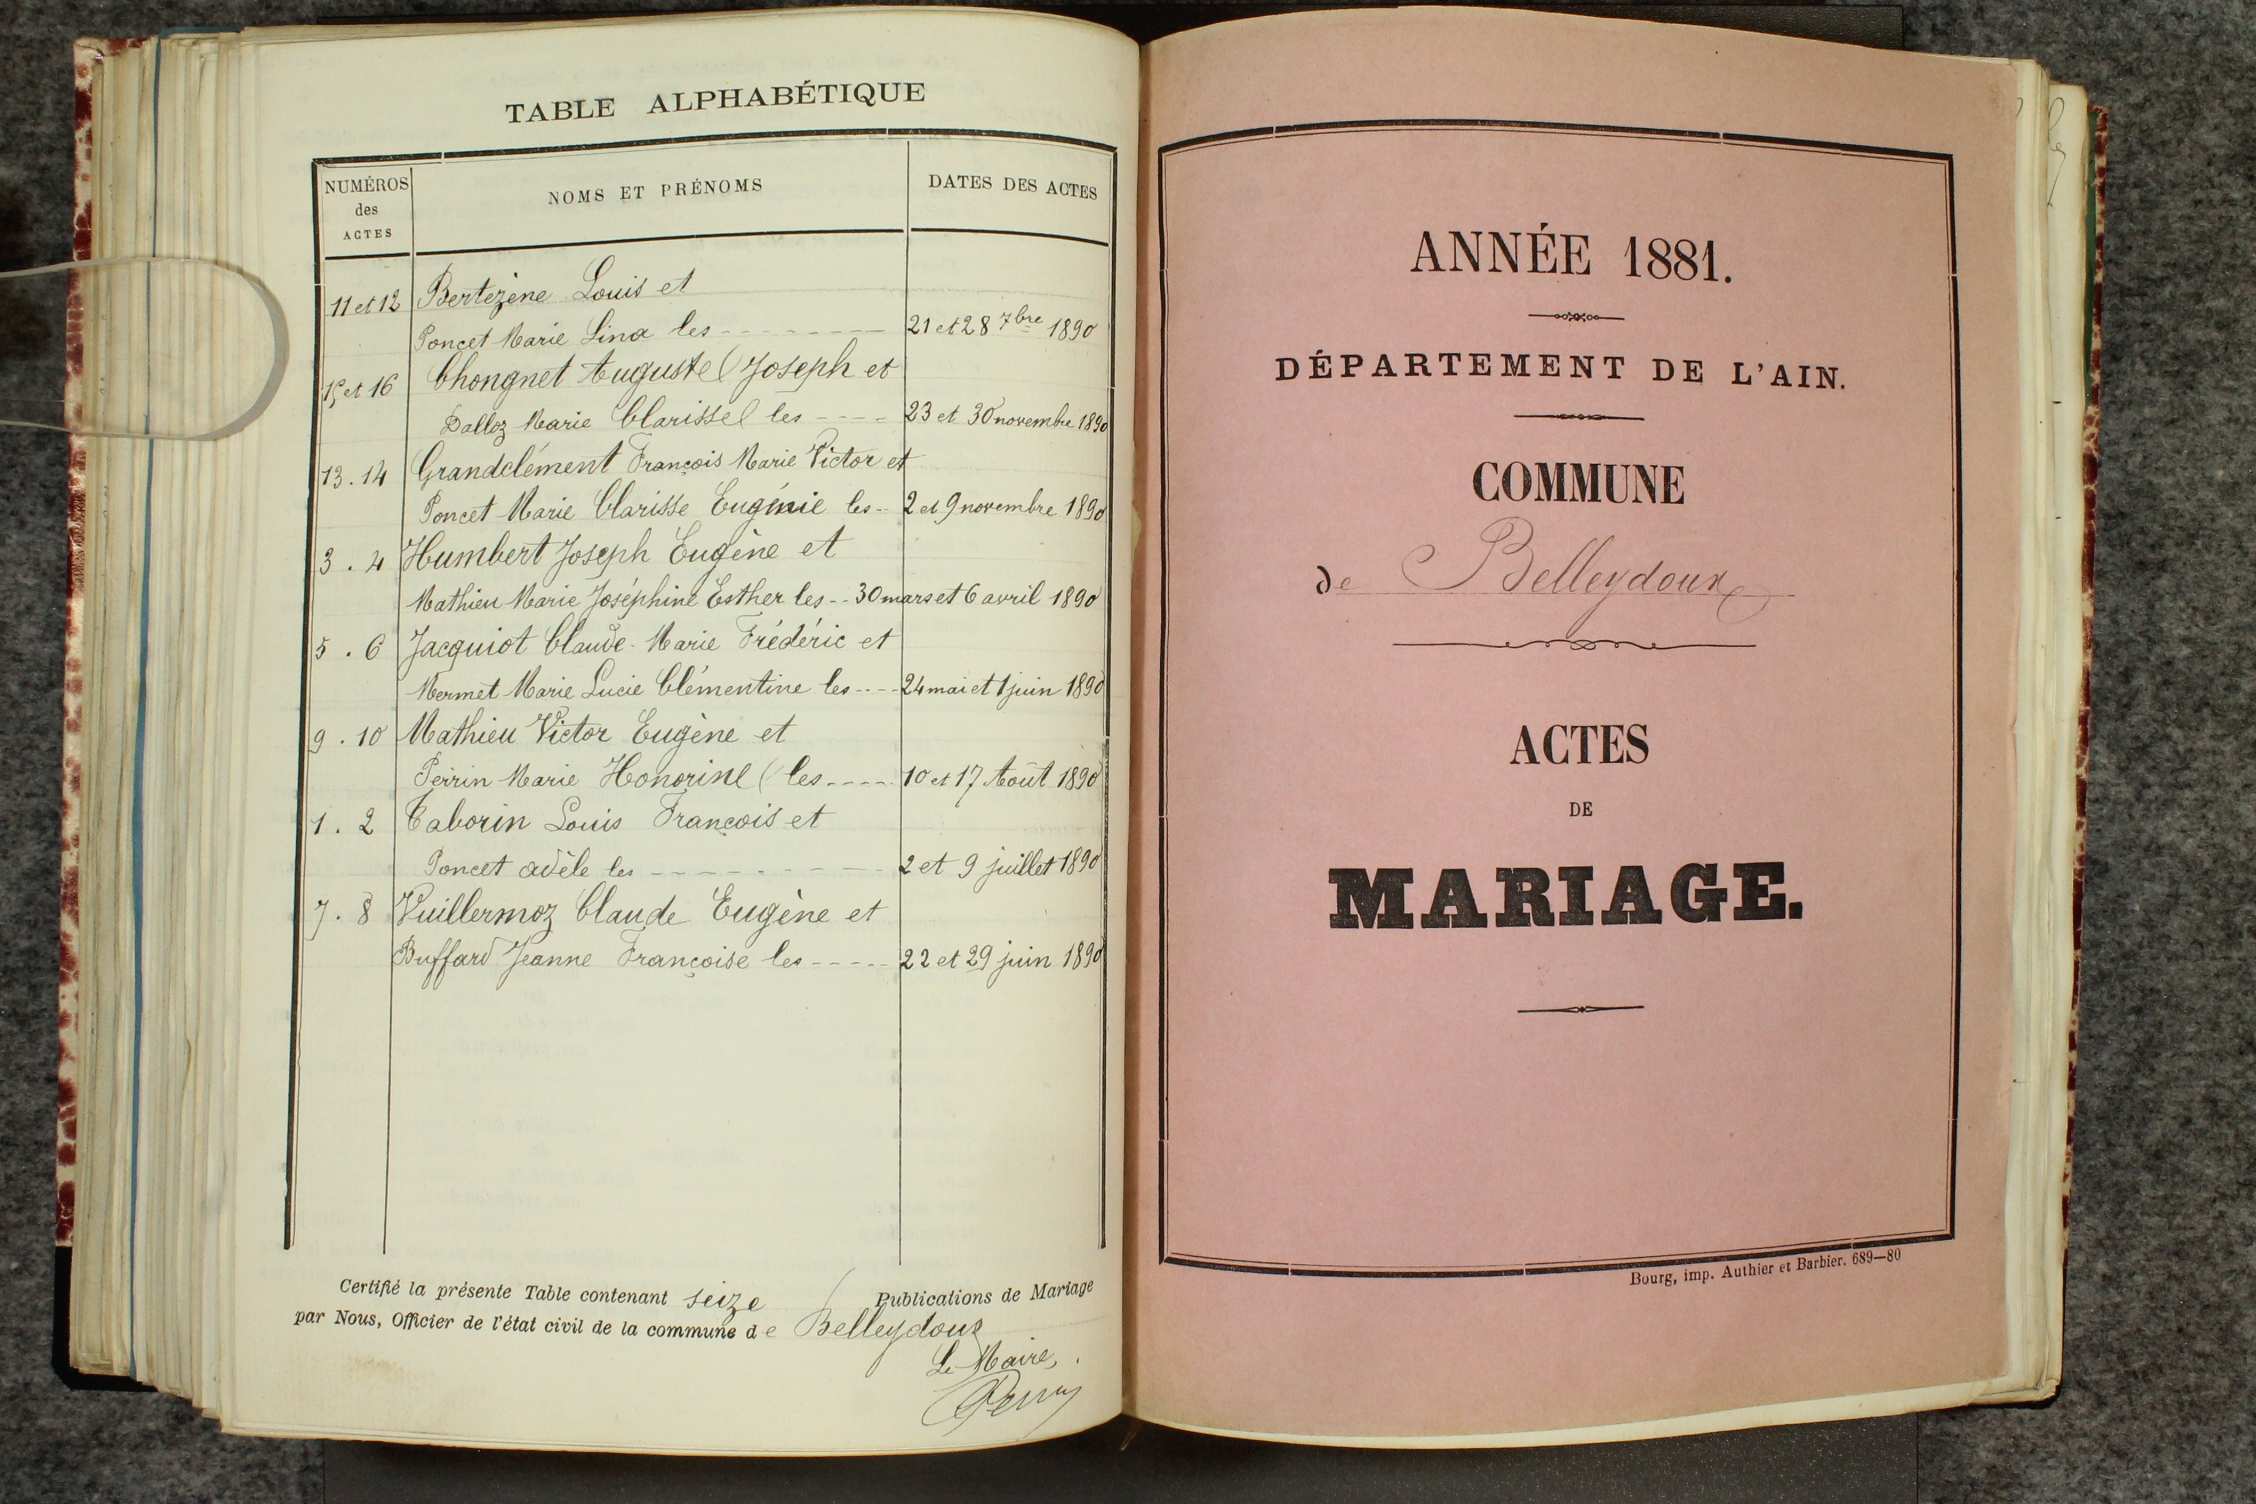 TABLE ALPHABÉTIQUE
NUMÉROS des ACTES
NOMS ET PRÉNOMS
DATES DES ACTES
11 et 12 Bertezène Louis et
Poncet Marie Lina les - - - - - - - - - 21 et 28 7bre 1890
15 et 16 Chongnet Auguste Joseph et
Dalloz Marie Clarisse les - - - - 23 et 30 novembre 1890
13 . 14 Grandclément François Marie Victor et
Poncet Marie Clarisse Eugénie les - - 2 et 9 novembre 1890
3 . 4 Humbert Joseph Eugène et
Mathieu Marie Joséphine Esther les - - 30 mars et 6 avril 1890
5 . 6 Jacquiot Claude Marie Frédéric et
Mermet Marie Lucie Clémentine les - - - - 24 mai et 1 juin 1890
9 . 10 Mathieu Victor Eugène et
Perrin Marie Honorine les - - - - 10 et 17 Août 1890
1 . 2 Taborin Louis François et
Poncet adèle les - - - - - - - - - 2 et 9 juillet 1890
7 . 8 Vuillermoz Claude Eugène et
Buffard Jeanne Françoise les - - - - - 22 et 29 juin 1890
Certifié la présente Table contenant seize Publications de Mariage
par Nous, Officier de l'état civil de la commune de Belleydoux
Le Maire,
ANNÉE 1881.
DÉPARTEMENT DE L'AIN.
COMMUNE
de Belleydoux
ACTES
DE
MARIAGE.
Bourg, imp. Authier et Barbier. 689—80